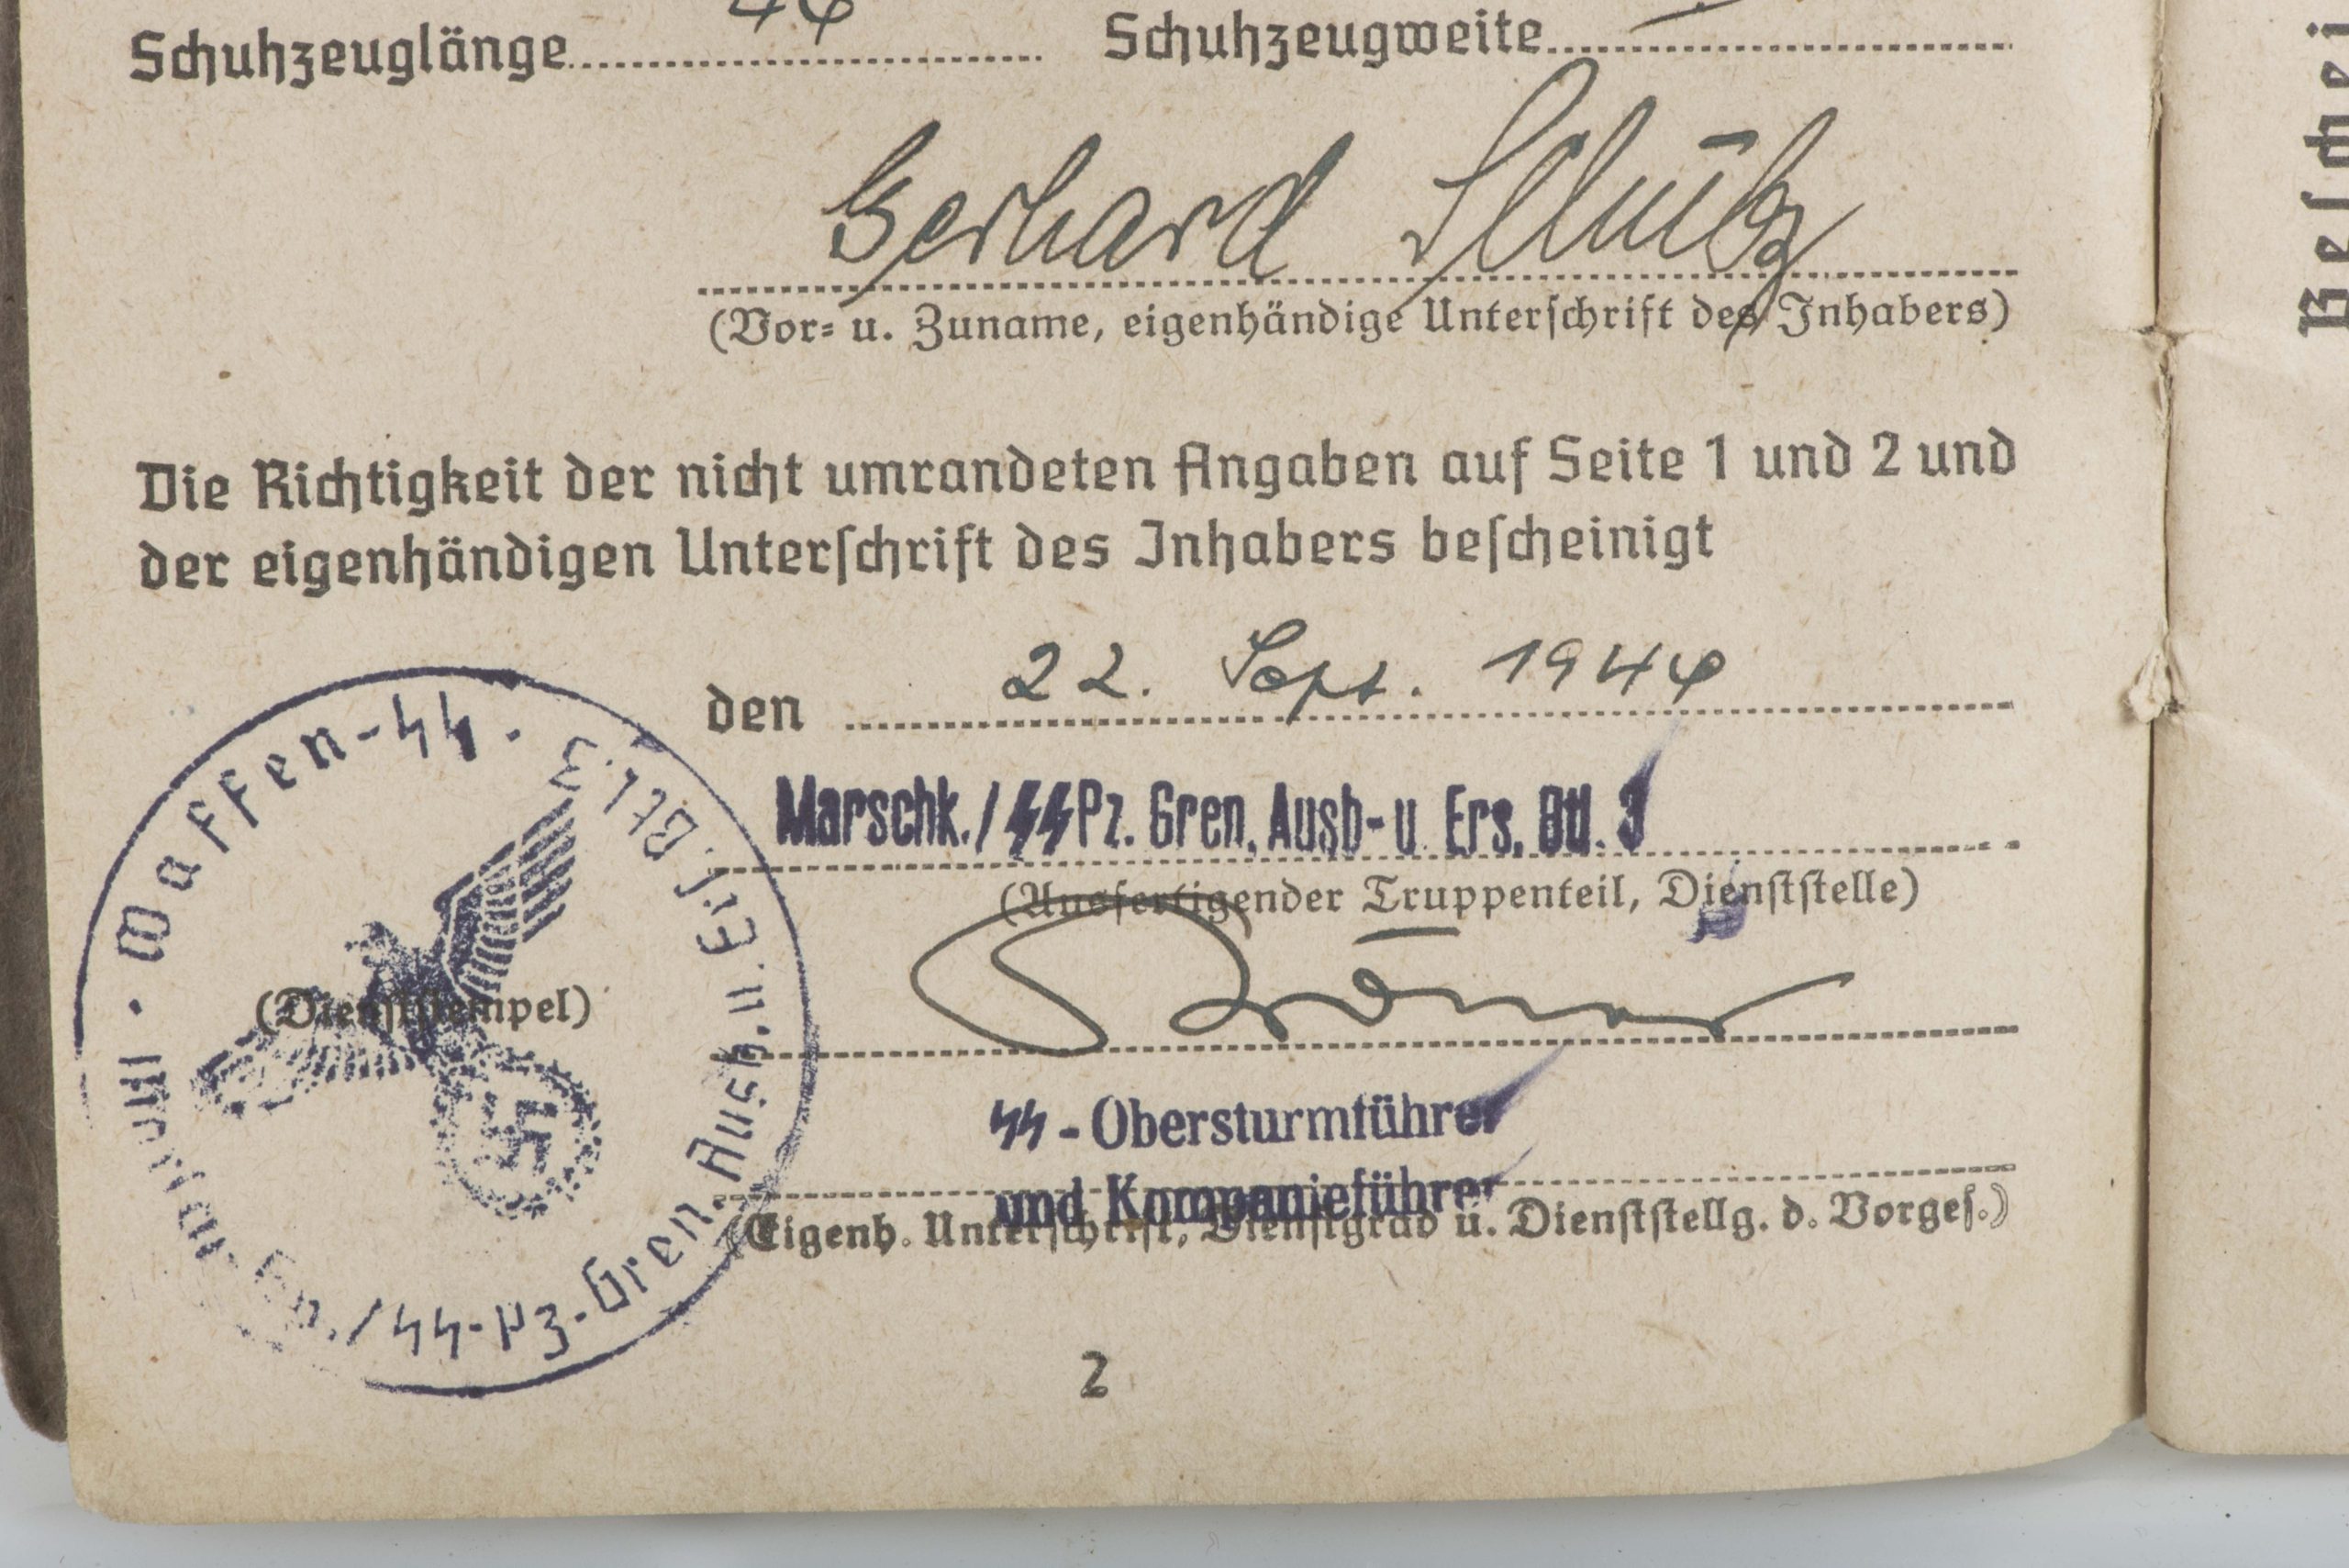 Schuhzeuglänge Schuhzeugweite
Gerhard Schütz
(Vor- u. Zuname, eigenhändige Unterschrift des Inhabers)
Die Richtigkeit der nicht umrandeten Angaben auf Seite 1 und 2 und
der eigenhändigen Unterschrift des Inhabers bescheinigt
den 22. Sept. 1944
Marschk./SS Pz. Gren. Ausb- u. Ers. Btl. 3
(Ausfertigender Truppenteil, Dienststelle)
Waffen-SS.
Kp./SS-Pz-Gren. Ausb. u. Ers. Btl. 3
(Dienststempel)
SS-Obersturmführer
und Kompanieführer
(Eigenh. Unterschrift, Dienstgrad u. Dienststellg. d. Vorges.)
2
Beschei